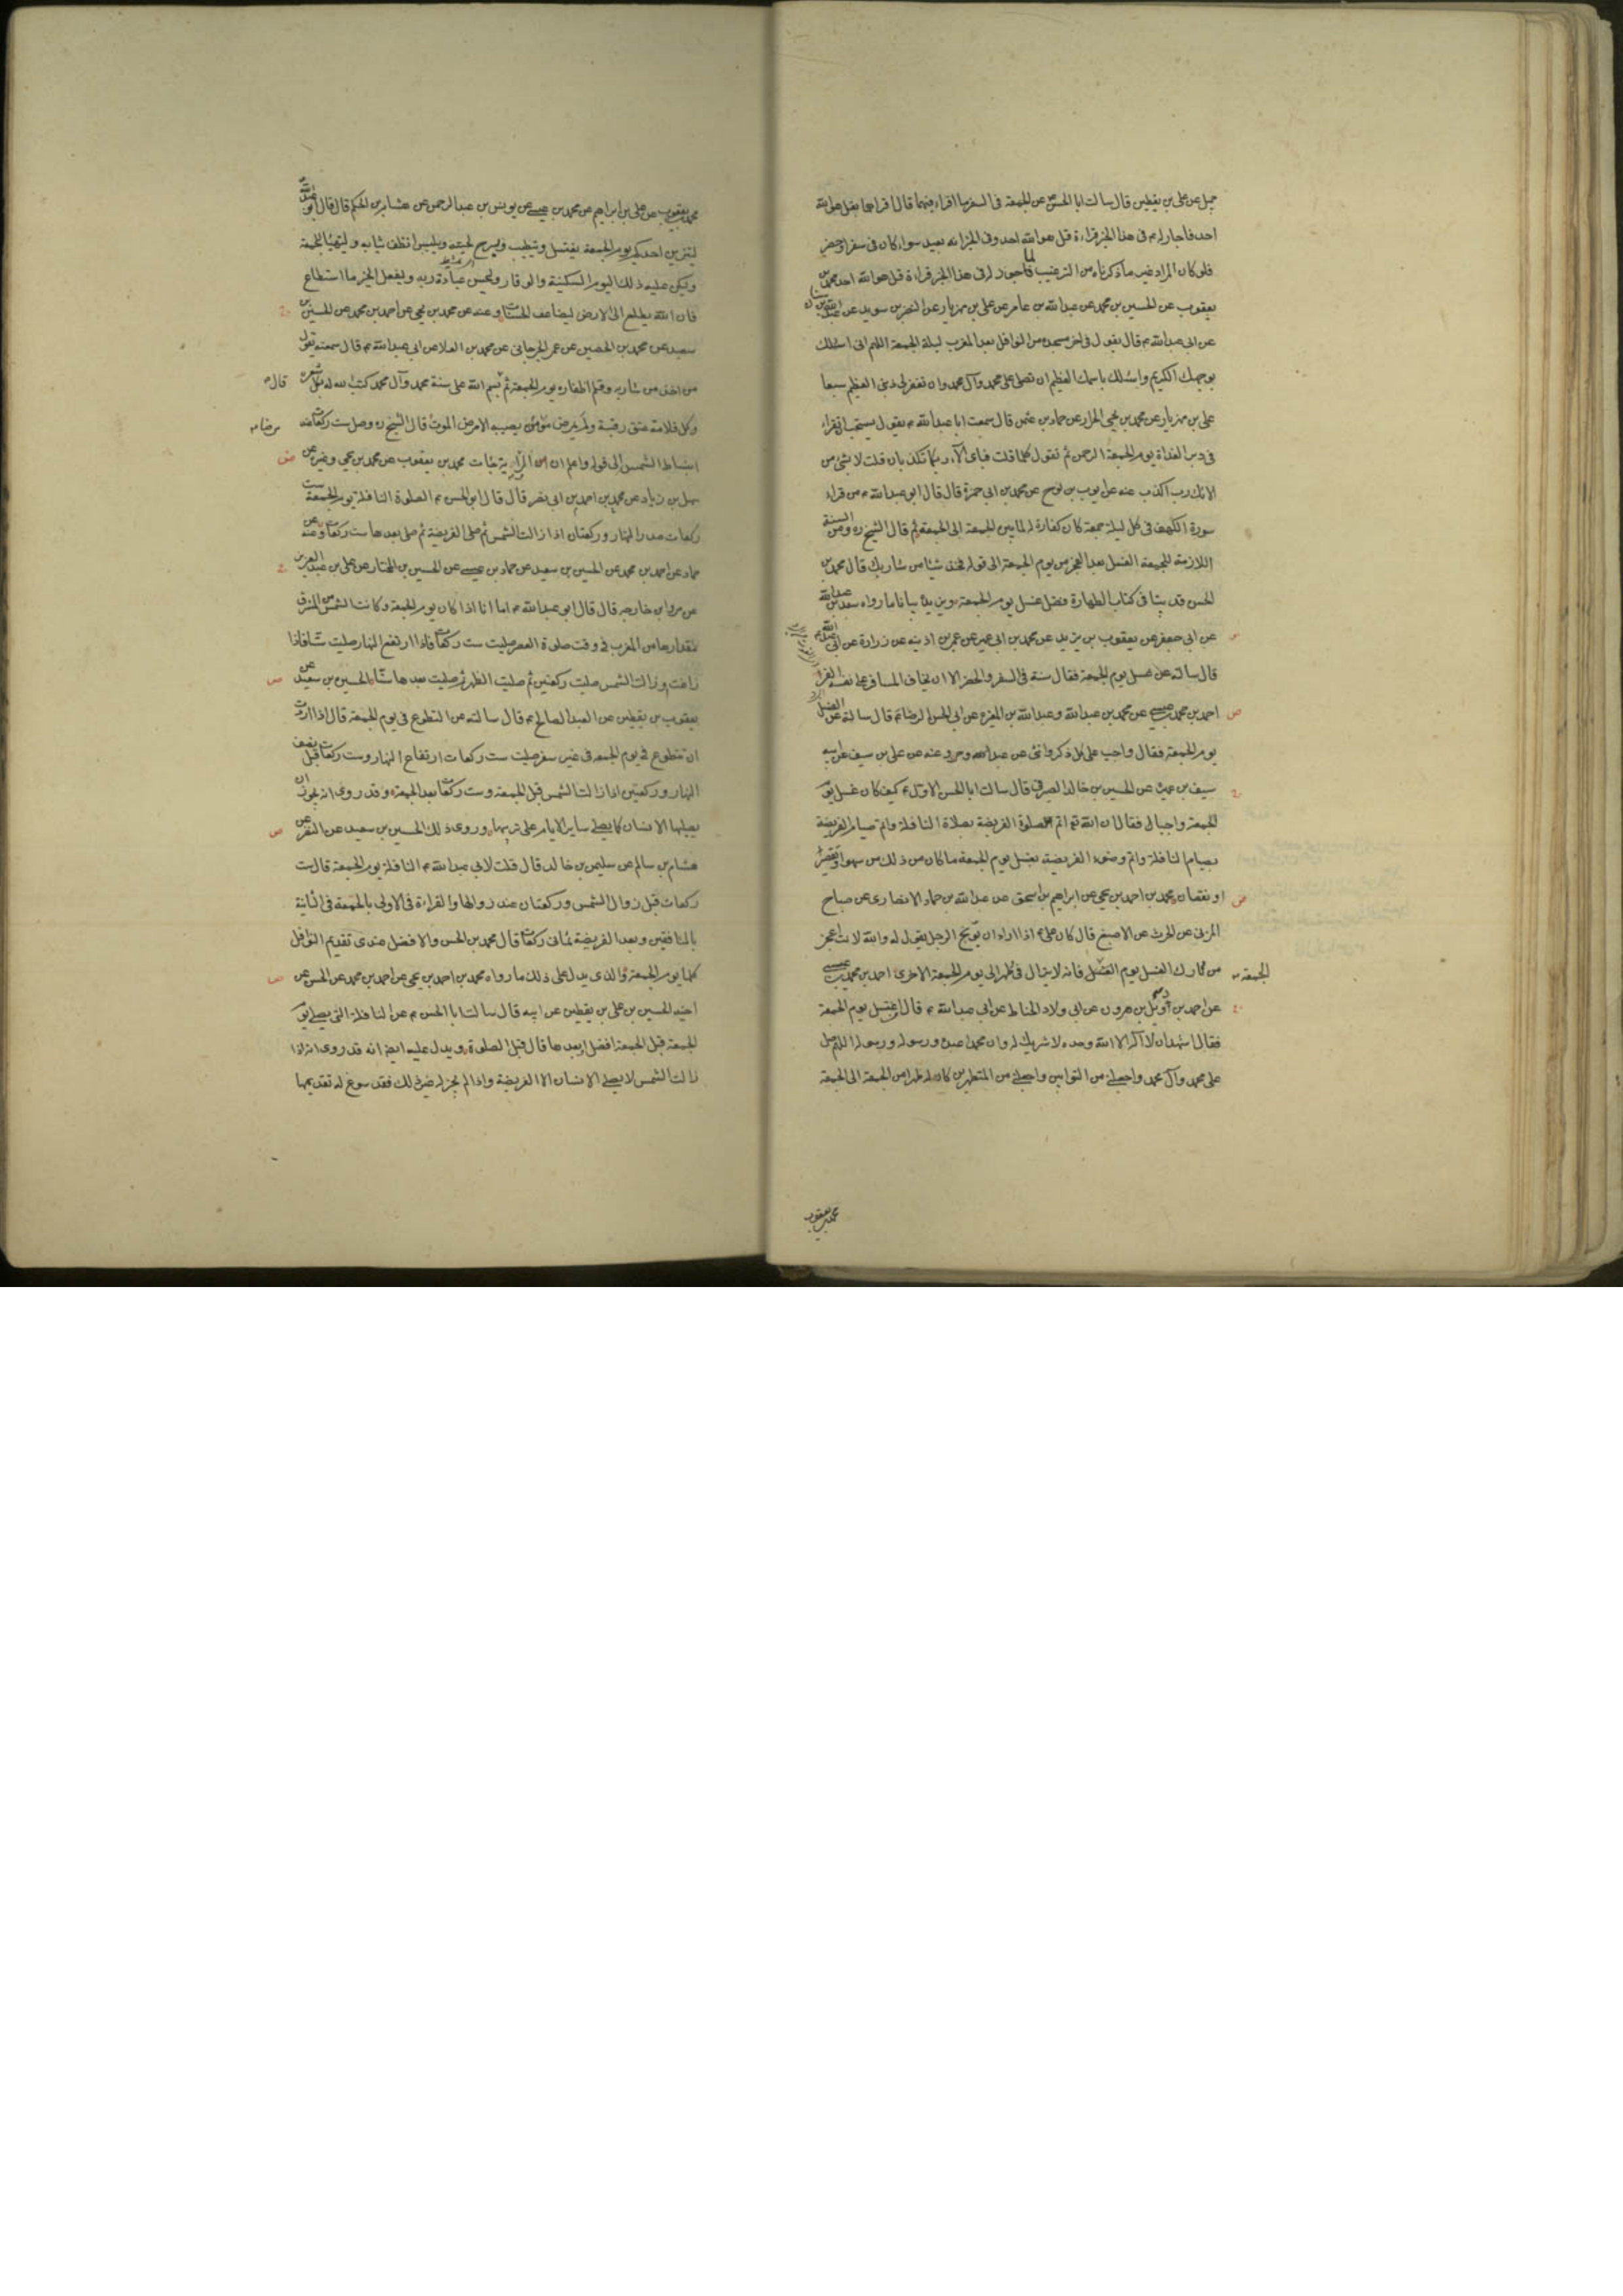 جميل عن علي بن يقطين قال سالت ابا الحسن ع عن الجمعة في السفر ما اقراء فيهما قال اقراهما بقل هو الله
احد فاجاز له م في هذا الخبر قراءة قل هو الله احد وفي الخبر انه يعيد سواء كان في سفر او حضر
فلو كان المراد غير ما ذكرناه من الترغيب لما جوز له في هذا الخبر قراءة قل هو الله احد محمد بن
يعقوب عن الحسين بن محمد عن عبد الله بن عامر عن علي بن مهزيار عن النضر بن سويد عن عبد الله بن سنان
عن ابي عبد الله م قال يقول في اخر سجدة من النوافل بعد المغرب ليلة الجمعة اللهم اني اسئلك
بوجهك الكريم واسئلك باسمك العظيم ان تصلي على محمد وآل محمد وان تغفر لي ذنبي العظيم سبعا
علي بن مهزيار عن محمد بن يحيى الخزاز عن حماد بن عثمن قال سمعت ابا عبد الله م يقول يستحب ان تقراء
في دبر الغداة يوم الجمعة الرحمن ثم تقول كلما قلت فباي آلاء ربكما تكذبان قلت لا بشئ من
الائك رب اكذب عنه عن ايوب بن نوح عن محمد بن ابي حمزة قال قال ابو عبد الله م من قراء
سورة الكهف في كل ليلة جمعة كان كفارة له لما بين الجمعة الى الجمعة ثم قال الشيخ ره ومن السنة
اللازمة للجمعة الغسل بعد الفجر من يوم الجمعة الى قوله فخذ شيئا من شاربك قال محمد بن
الحسن قد بينا في كتاب الطهارة فضل غسل يوم الجمعة ويزيده بيانا ما رواه سعد بن عبد الله
عن ابي جعفر عن يعقوب بن يزيد عن محمد بن ابي عمير عن عمر بن اذينه عن زرارة عن ابي عبد الله م
قال سالته عن غسل يوم الجمعة فقال سنة في السفر والحضر الا ان يخاف المسافر على نفسه القر
احمد بن محمد بن عيسى عن محمد بن عبد الله وعبد الله بن المغيرة عن ابي الحسن الرضا م قال سالته عن الغسل
يوم الجمعة فقال واجب على كل ذكر وانثى من عبد او حر وعنه عن علي بن سيف عن ابيه
سيف بن عميرة عن الحسين بن خالد الصيرفي قال سالت ابا الحسن الاول م كيف كان غسل يوم
الجمعة واجبا قال فقال ان الله تم اتم الصلوة الفريضة بصلاة النافلة واتم صيام الفريضة
بصيام النافلة واتم وضوء الفريضة بغسل يوم الجمعة ما كان من ذلك من سهو او تقصير
او نقصان محمد بن احمد بن يحيى عن ابراهيم بن اسحق عن عبد الله بن حماد الانصاري عن صباح
المزني عن الحرث عن الاصبغ قال كان علي م اذا اراد ان يوبخ الرجل يقول له والله لانت اعجز
من تارك الغسل يوم الجمعة فانه لا يزال في طهر الى يوم الجمعة الاخرى احمد بن محمد بن عيسى
عن احمد بن دويل بن هرون عن ابي ولاد الحناط عن ابي عبد الله م قال من اغتسل يوم الجمعة
فقال اشهد ان لا آله الا الله وحده لا شريك له وان محمدا عبده ورسوله اللهم صل
على محمد وآل محمد واجعلني من التوابين واجعلني من المتطهرين كان له طهرا من الجمعة الى الجمعة
محمد بن يعقوب
محمد بن يعقوب عن علي بن ابراهيم عن محمد بن عيسى عن يونس بن عبد الرحمن عن هشام بن الحكم قال قال ابو عبد الله
ليتزين احدكم يوم الجمعة يغتسل ويتطيب ويسرح لحيته ويلبس انظف ثيابه وليتهيأ للجمعة
وليكن عليه ذلك اليوم السكينة والوقار وليحسن عبادة ربه وليفعل الخير ما استطاع
فان الله يطلع الى الارض ليضاعف الحسنات وعنه عن محمد بن يحيى عن احمد بن محمد عن الحسين بن
سعيد عن محمد بن الحصين عن عمر الجرجاني عن محمد بن العلا عن ابي عبد الله م قال سمعته يقول
من اخذ من شاربه وقلم اظفاره يوم الجمعة ثم قال بسم الله على سنة محمد وآل محمد كتب الله له بكل شعرة
وكل قلامة عتق رقبة ولم يمرض مرضا يصيبه الا مرض الموت قال الشيخ ره وصل ست ركعات عند
انبساط الشمس الى قوله واعلم ان من الرواية محمد بن يعقوب عن محمد بن يحيى وغيره عن
سهل بن زياد عن محمد بن احمد بن ابي نصر قال قال ابو الحسن م الصلوة النافلة يوم الجمعة ست
ركعات صدر النهار وركعتان اذا زالت الشمس ثم صلى الفريضة ثم صلى بعدها ست ركعات وعنه عن
حماد عن احمد بن محمد عن الحسين بن سعيد عن حماد بن عيسى عن الحسين بن المختار عن علي بن عبد العزيز
عن مراد بن خارجه قال قال ابو عبد الله م اما انا اذا كان يوم الجمعة وكانت الشمس من المشرق
مقدارها من المغرب في وقت صلوة العصر صليت ست ركعات فاذا ارتفع النهار صليت ستا فاذا
زاغت او زالت الشمس صليت ركعتين ثم صليت الظهر ثم صليت بعدها ستا الحسين بن سعيد عن
يعقوب بن يقطين عن العبد الصالح م قال سالته عن التطوع في يوم الجمعة قال اذا اردت
ان تتطوع في يوم الجمعة في غير سفر صليت ست ركعات ارتفاع النهار وست ركعات قبل نصف
النهار وركعتين اذا زالت الشمس قبل الجمعة وست ركعات بعد الجمعة وقد روى انه يجوز ان
يصليها الانسان كما يصلي ساير الايام على ترتيبها وروى ذلك الحسين بن سعيد عن النضر عن
هشام بن سالم عن سليمن بن خالد قال قلت لابي عبد الله م النافلة يوم الجمعة قال ست
ركعات قبل زوال الشمس وركعتان عند زوالها والقراءة في الاولى بالجمعة وفي الثانية
بالمنافقين وبعد الفريضة ثماني ركعات قال محمد بن الحسن والافضل عندي تقديم النوافل
كلها يوم الجمعة والذي يدل على ذلك ما رواه محمد بن احمد بن يحيى عن احمد بن محمد عن الحسن عن
اخيه الحسين بن علي بن يقطين عن ابيه قال سالت ابا الحسن م عن النافلة التي يصلي يوم
الجمعة قبل الجمعة افضل او بعدها قال قبل الصلوة ويدل عليه ايضا انه قد روى انه اذا
زالت الشمس لا يصلي الانسان الا الفريضة واذا لم يجز له غير ذلك فقد سوغ له تقديمها